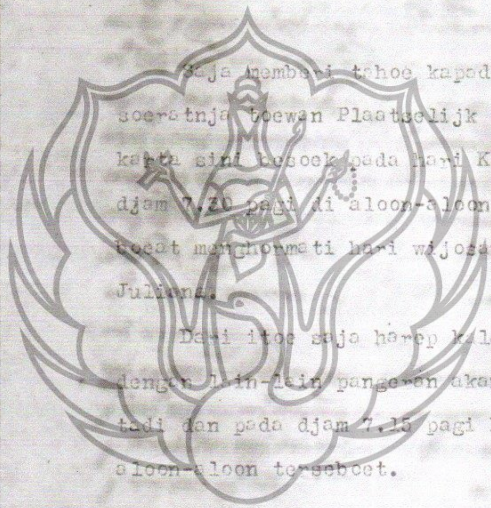 Saja memberi tahoe kapad
soeratnja toewan Plaatselijk
karta sini besoek pada hari K
djam 7.30 pagi di aloon-aloon
boeat menghormati hari wijosa
Juliana.
Dari itoe saja harep kal
dengan lain-lain pangeran aka
tadi dan pada djam 7.15 pagi
aloon-aloon terseboet.